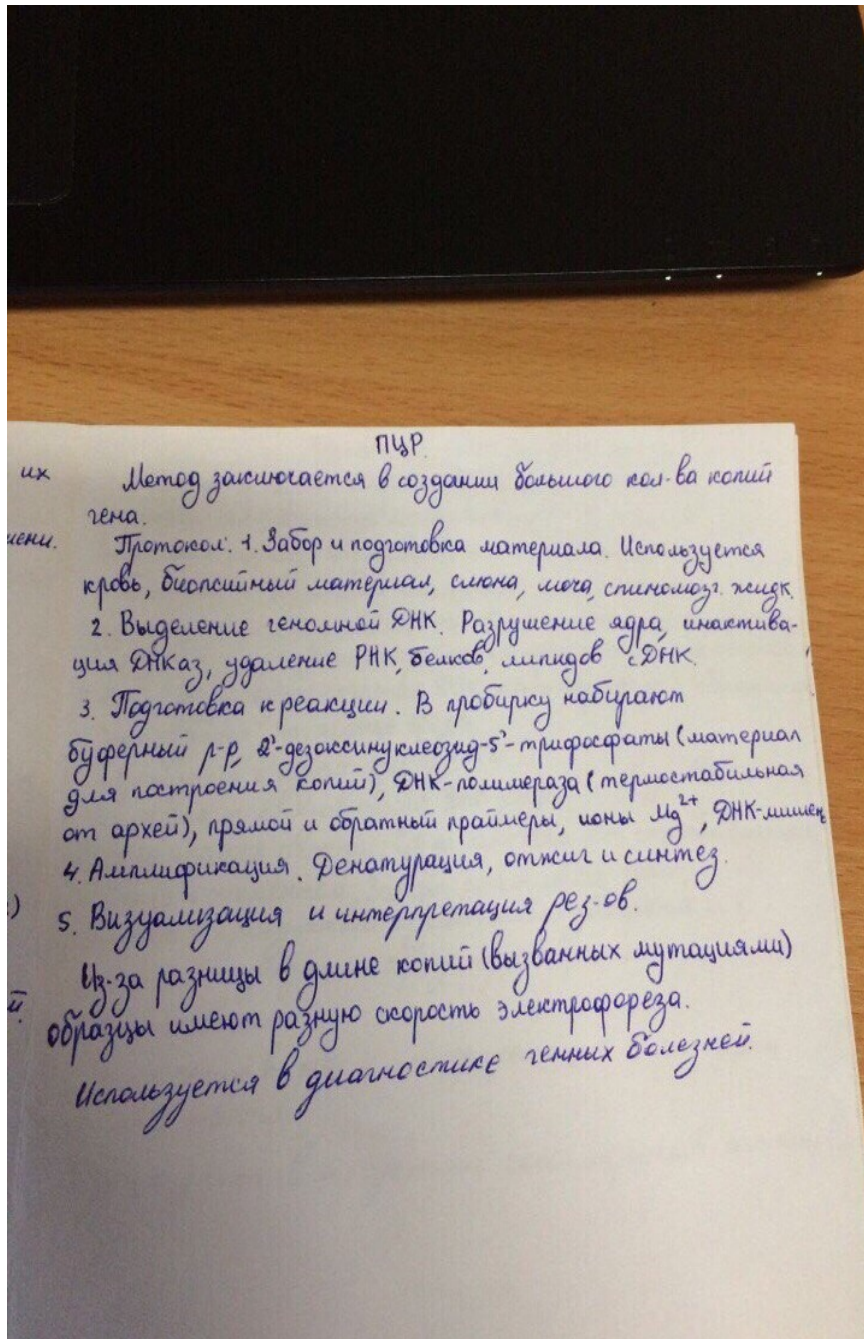 ПЦР.
их
Метод заключается в создании большого кол-ва копий
гена.
мени.
Протокол: 1. Забор и подготовка материала. Используется
кровь, биопсийный материал, слюна, моча, спиномозг. жидк.
2. Выделение геномной ДНК. Разрушение ядра, инактива-
ция ДНКаз, удаление РНК, белков, липидов с ДНК.
3. Подготовка к реакции. В пробирку набирают
буферный р-р, 2'-дезоксинуклеозид-5'-трифосфаты (материал
для построения копий), ДНК-полимераза (термостабильная
от архей), прямой и обратный праймеры, ионы Mg2+, ДНК-мишень
4. Амплификация. Денатурация, отжиг и синтез.
5. Визуализация и интерпретация рез-ов.
Из-за разницы в длине копий (вызванных мутациями)
образцы имеют разную скорость электрофореза.
Используется в диагностике генных болезней.